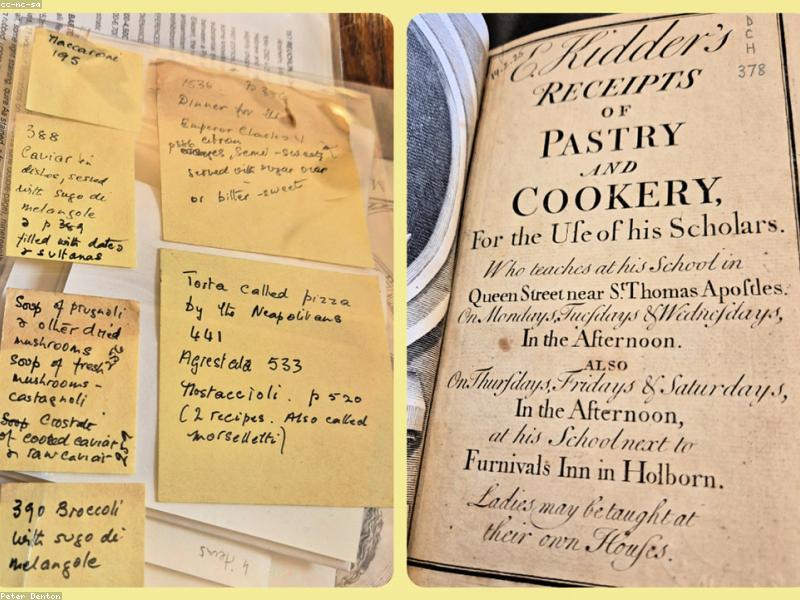 cc-nc-sa
Maccarone
195
388
Caviar in
dishes, served
with sugo di
melangole
2 p 389
filled with dates
& sultanas
Soup of prugnoli
& other dried
mushrooms
Soup of fresh
mushrooms -
castagnoli
Soup Crostate
of cooked caviar
& raw caviar
390 Broccoli
with sugo di
melangole
1536
Dinner for the
Emperor Charles V
citron
semi-sweet
served with sugar over
or bitter-sweet
Torta called pizza
by the Neapolitans
441
Agrestada 533
Mostaccioli. p 520
(2 recipes. Also called
morselletti)
4 items
14.5.25
D
C
H
378
E Kidder's
RECEIPTS
OF
PASTRY
AND
COOKERY,
For the Uſe of his Scholars.
Who teaches at his School in
Queen Street near St Thomas Apoſtles.
On Mondays, Tueſdays & Wedneſdays,
In the Afternoon.
ALSO
On Thurſdays, Fridays & Saturdays,
In the Afternoon,
at his School next to
Furnivals Inn in Holborn.
Ladies may be taught at
their own Houſes.
Peter Denton